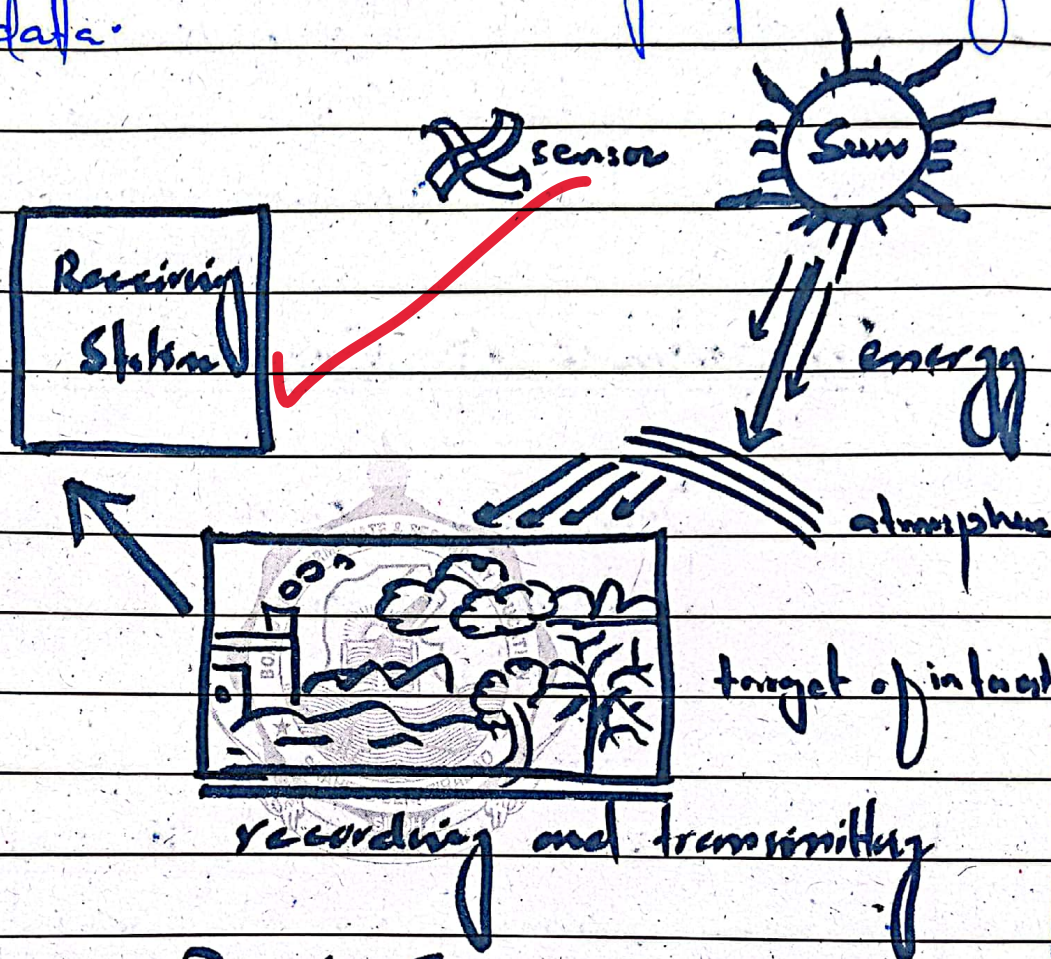 data.
sensor
Sun
Receiving
Station
energy
atmosphere
target of interest
recording and transmitting